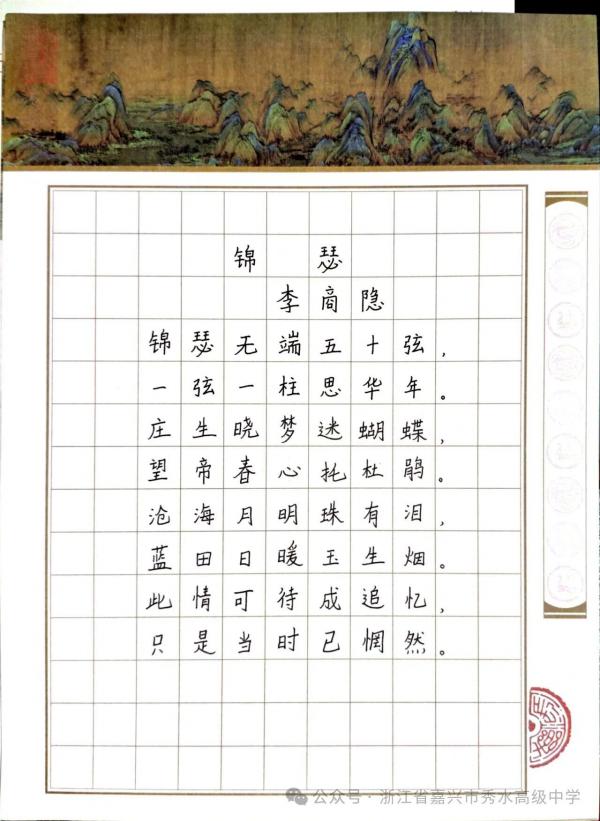 锦瑟
李商隐
锦瑟无端五十弦，
一弦一柱思华年。
庄生晓梦迷蝴蝶，
望帝春心托杜鹃。
沧海月明珠有泪，
蓝田日暖玉生烟。
此情可待成追忆，
只是当时已惘然。
公众号·浙江省嘉兴市秀水高级中学